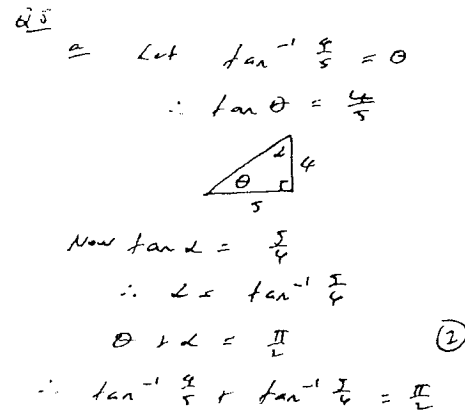 Q5
a Let tan⁻¹ 4/5 = θ
∴ tan θ = 4/5
α 4
θ
5
Now tan α = 5/4
∴ α = tan⁻¹ 5/4
θ + α = π/2 (2)
∴ tan⁻¹ 4/5 + tan⁻¹ 5/4 = π/2